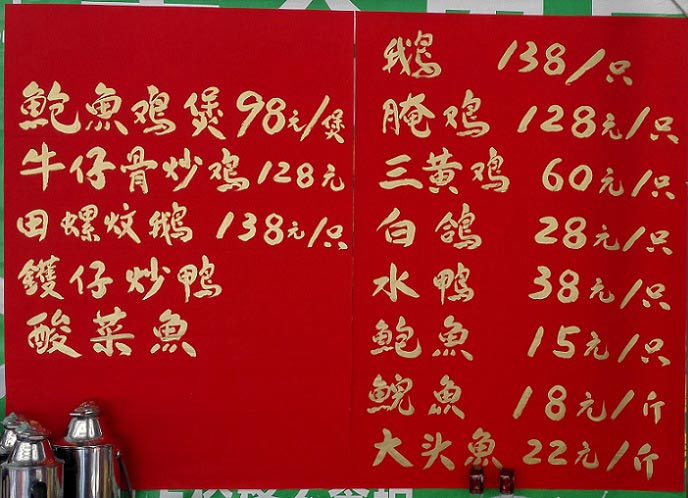 鲍魚鸡煲98元/煲
牛仔骨炒鸡128元
田螺炆鹅 138元/只
鑊仔炒鸭
酸菜魚
鹅 138/只
腌鸡 128元/只
三黄鸡 60元/只
白鸽 28元/只
水鸭 38元/只
鲍魚 15元/只
鲩魚 18元/斤
大头魚 22元/斤